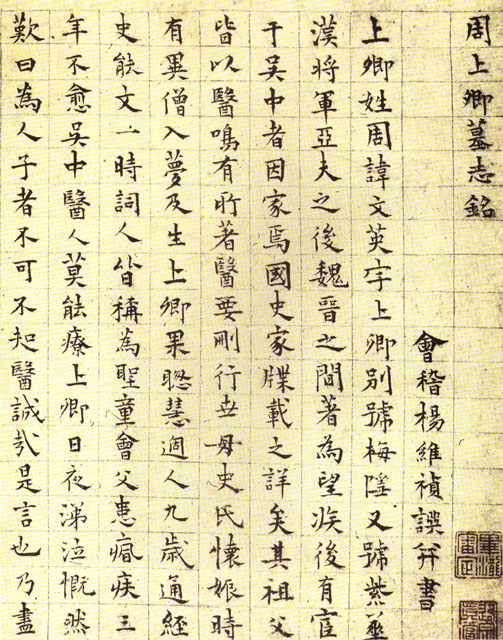 周上卿墓志銘
會稽楊維禎譔并書
上卿姓周諱文英字上卿別號梅隱又號紫華
漢將軍亞夫之後魏晉之間著為望族後有宦
于吳中者因家焉國史家牒載之詳矣其祖父
皆以醫鳴有所著醫要刪行世母史氏懷娠時
有異僧入夢及生上卿果聦慧過人九歲通經
史能文一時詞人皆稱為聖童會父患瘕疾三
年不愈吳中醫人莫能療上卿日夜涕泣慨然
歎曰為人子者不可不知醫誠哉是言也乃盡